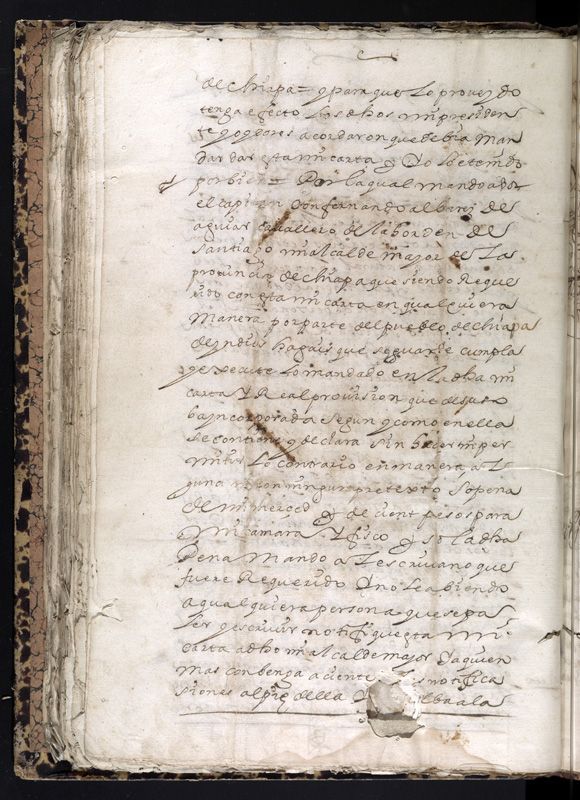 de chiapa = y para que lo proveydo
tenga efecto los dhos mi presiden
te y oydores acordaron que debia man
dar dar esta mi carta E yo lo e tenido
por bien = Por la qual mando a don
el capitan don fernando albarez de
aguiar cavallero de la borden de
santiago mi alcalde major de la
provincia de chiapa que siendo Reque
rido con esta mi carta en qualquiera
manera por parte del pueblo de chiapa
de yndios hagais que se guarde cumpla
y execute lo mandado en la dha mi
carta y Real provision que de suso
ba yncorporada segun y como en ella
se contiene y declara sin hacer ni per
mitir lo contrario en manera al
guna ni con ningun pretexto so pena
de mi merced y de cient pesos para
mi camara y fisco y so la dha
Pena mando al escrivano que
fuere Requerido y no le abiendo
a qualquiera persona que sepa
leer y escrivir notifique esta mi
carta a dho mi alcalde major y a quien
mas conbenga aciente las notifica
siones al pie della